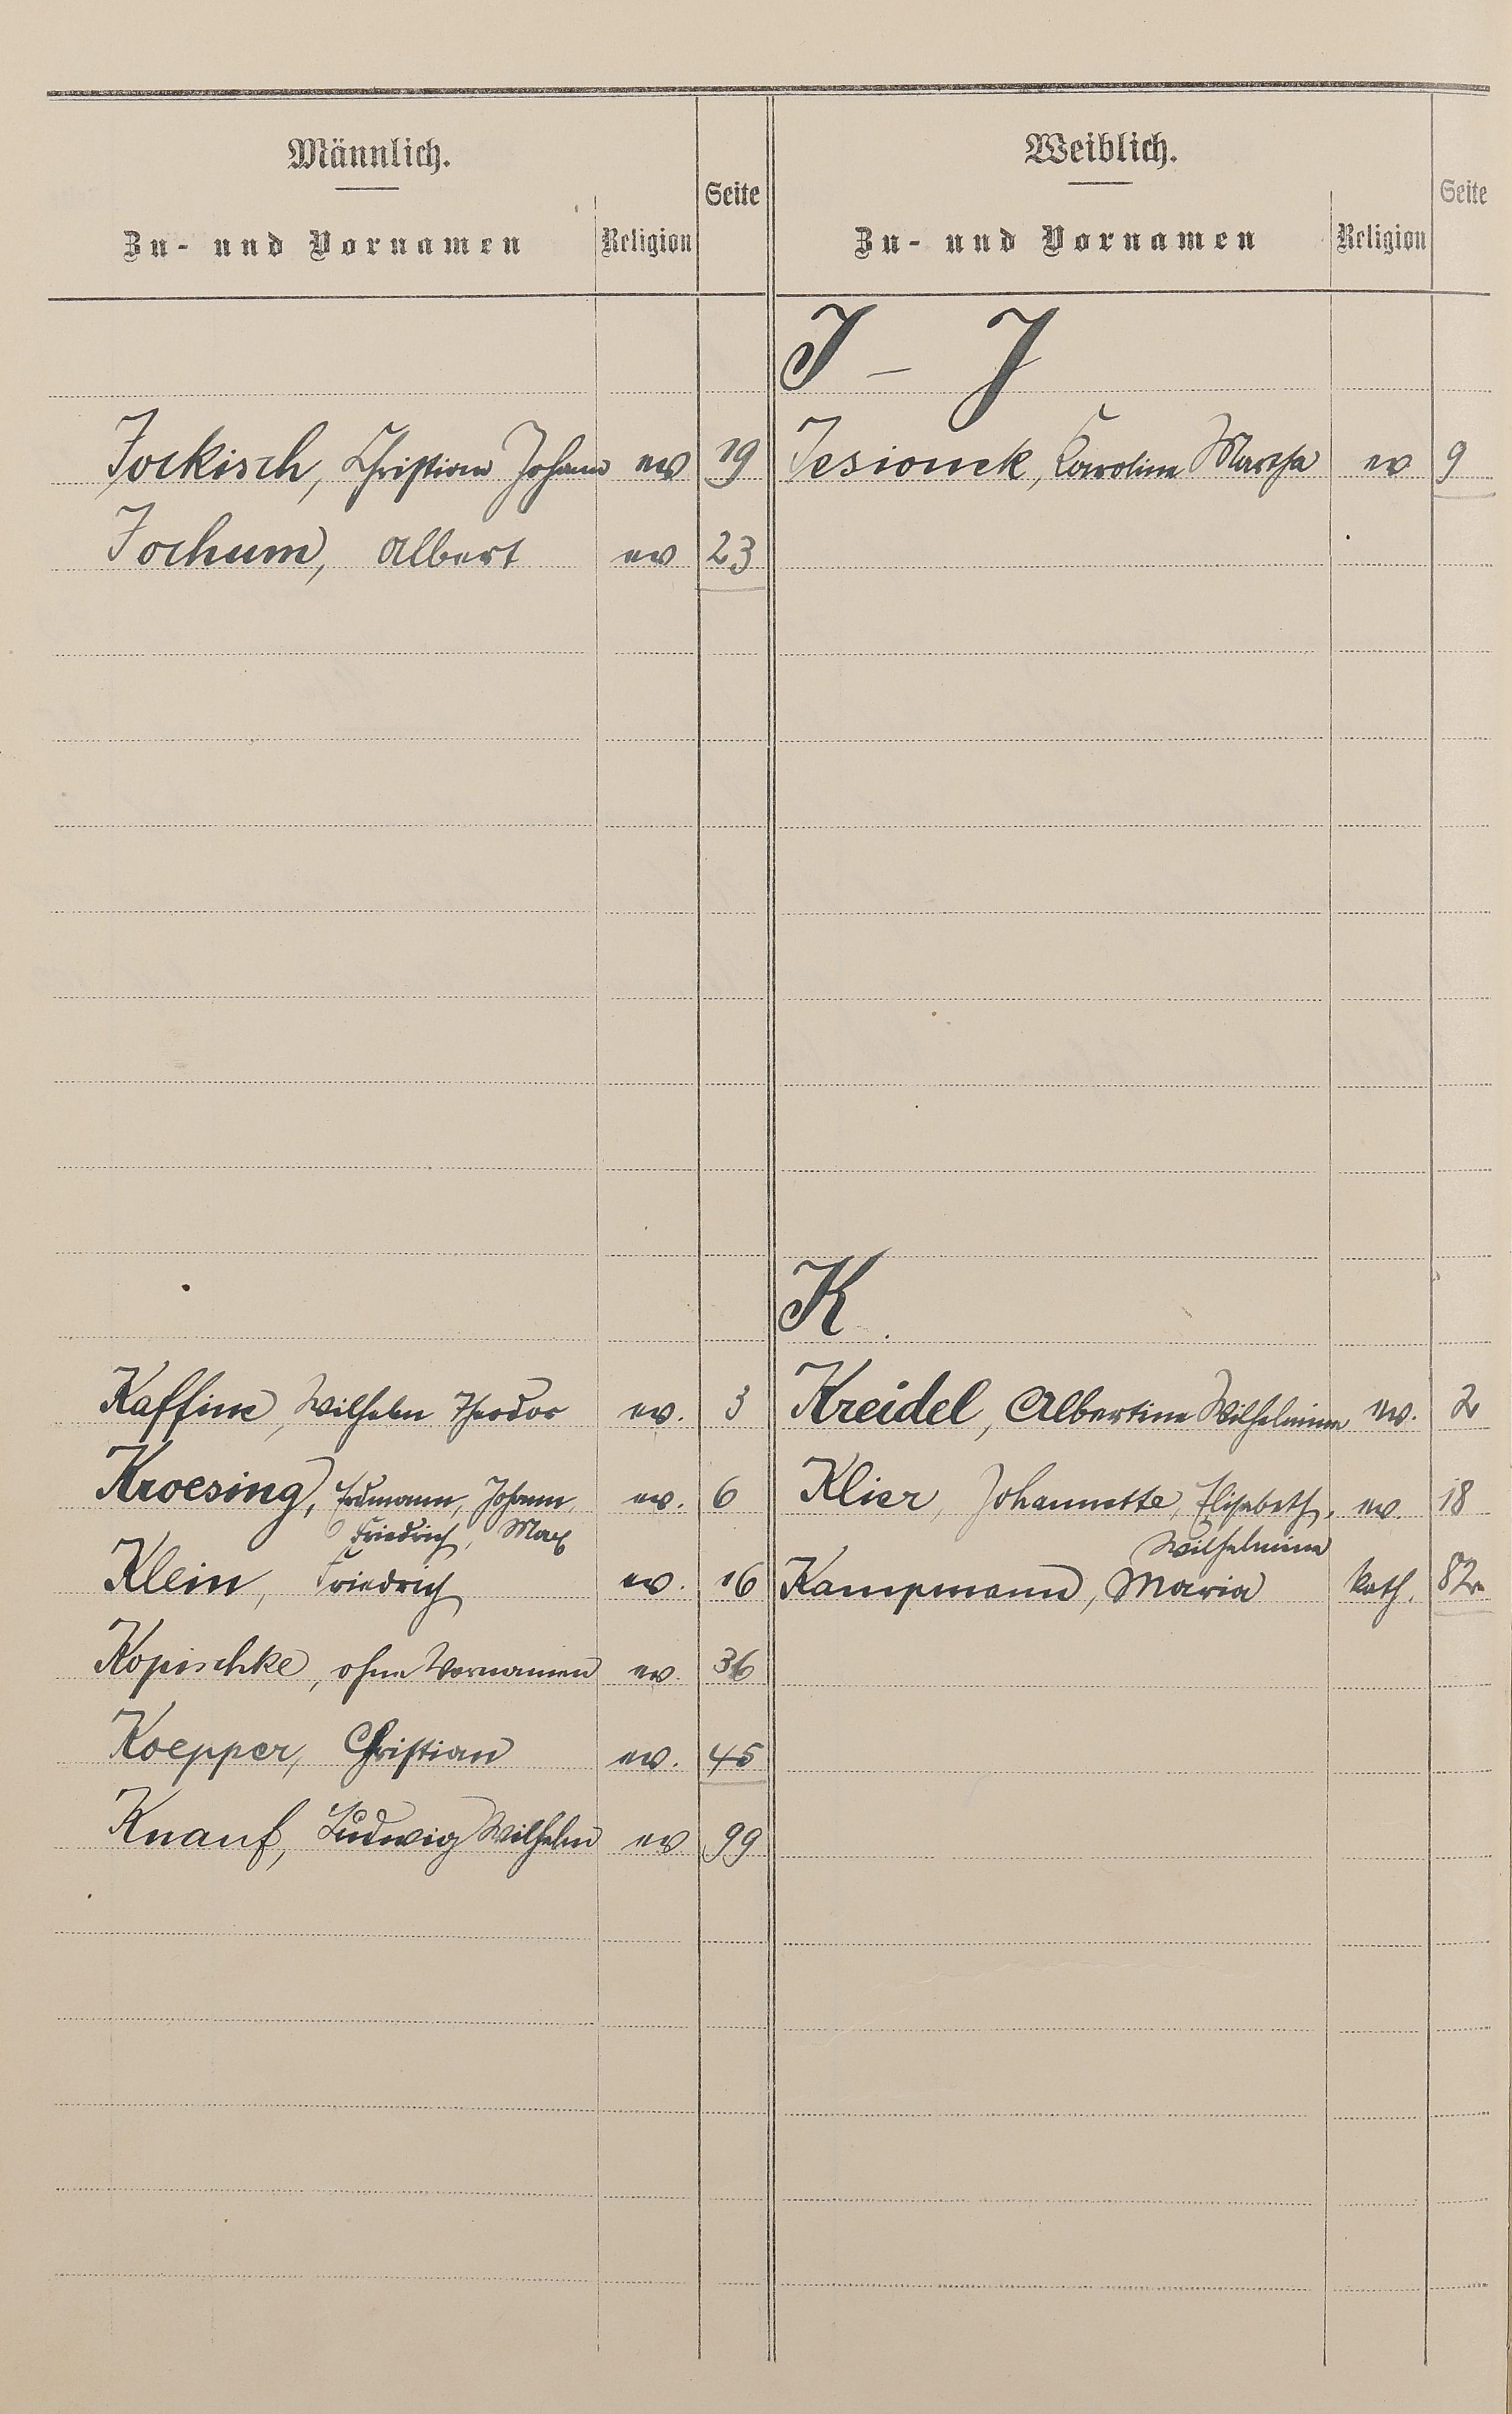 Männlich.
Zu- und Vornamen
Religion
Seite
Weiblich.
Zu- und Vornamen
Religion
Seite
I – J
Jockisch, Christian Johann ev 19
Jesionek, Karoline Martha ev 9
Jochum, Albert ev 23
K.
Kaffine, Wilhelm Theodor ev. 3
Kreidel, Albertine Wilhelmine ev. 2
Kroesing, Erdmann, Johann, ev. 6
Friedrich, Max
Klier, Johannette, Elisabeth, ev. 18
Wilhelmine
Klein, Friedrich ev. 16
Kampmann, Maria kath. 82
Kopischke, ohne Vornamen ev. 36
Koepper, Christian ev. 45
Knauf, Ludwig Wilhelm ev 99